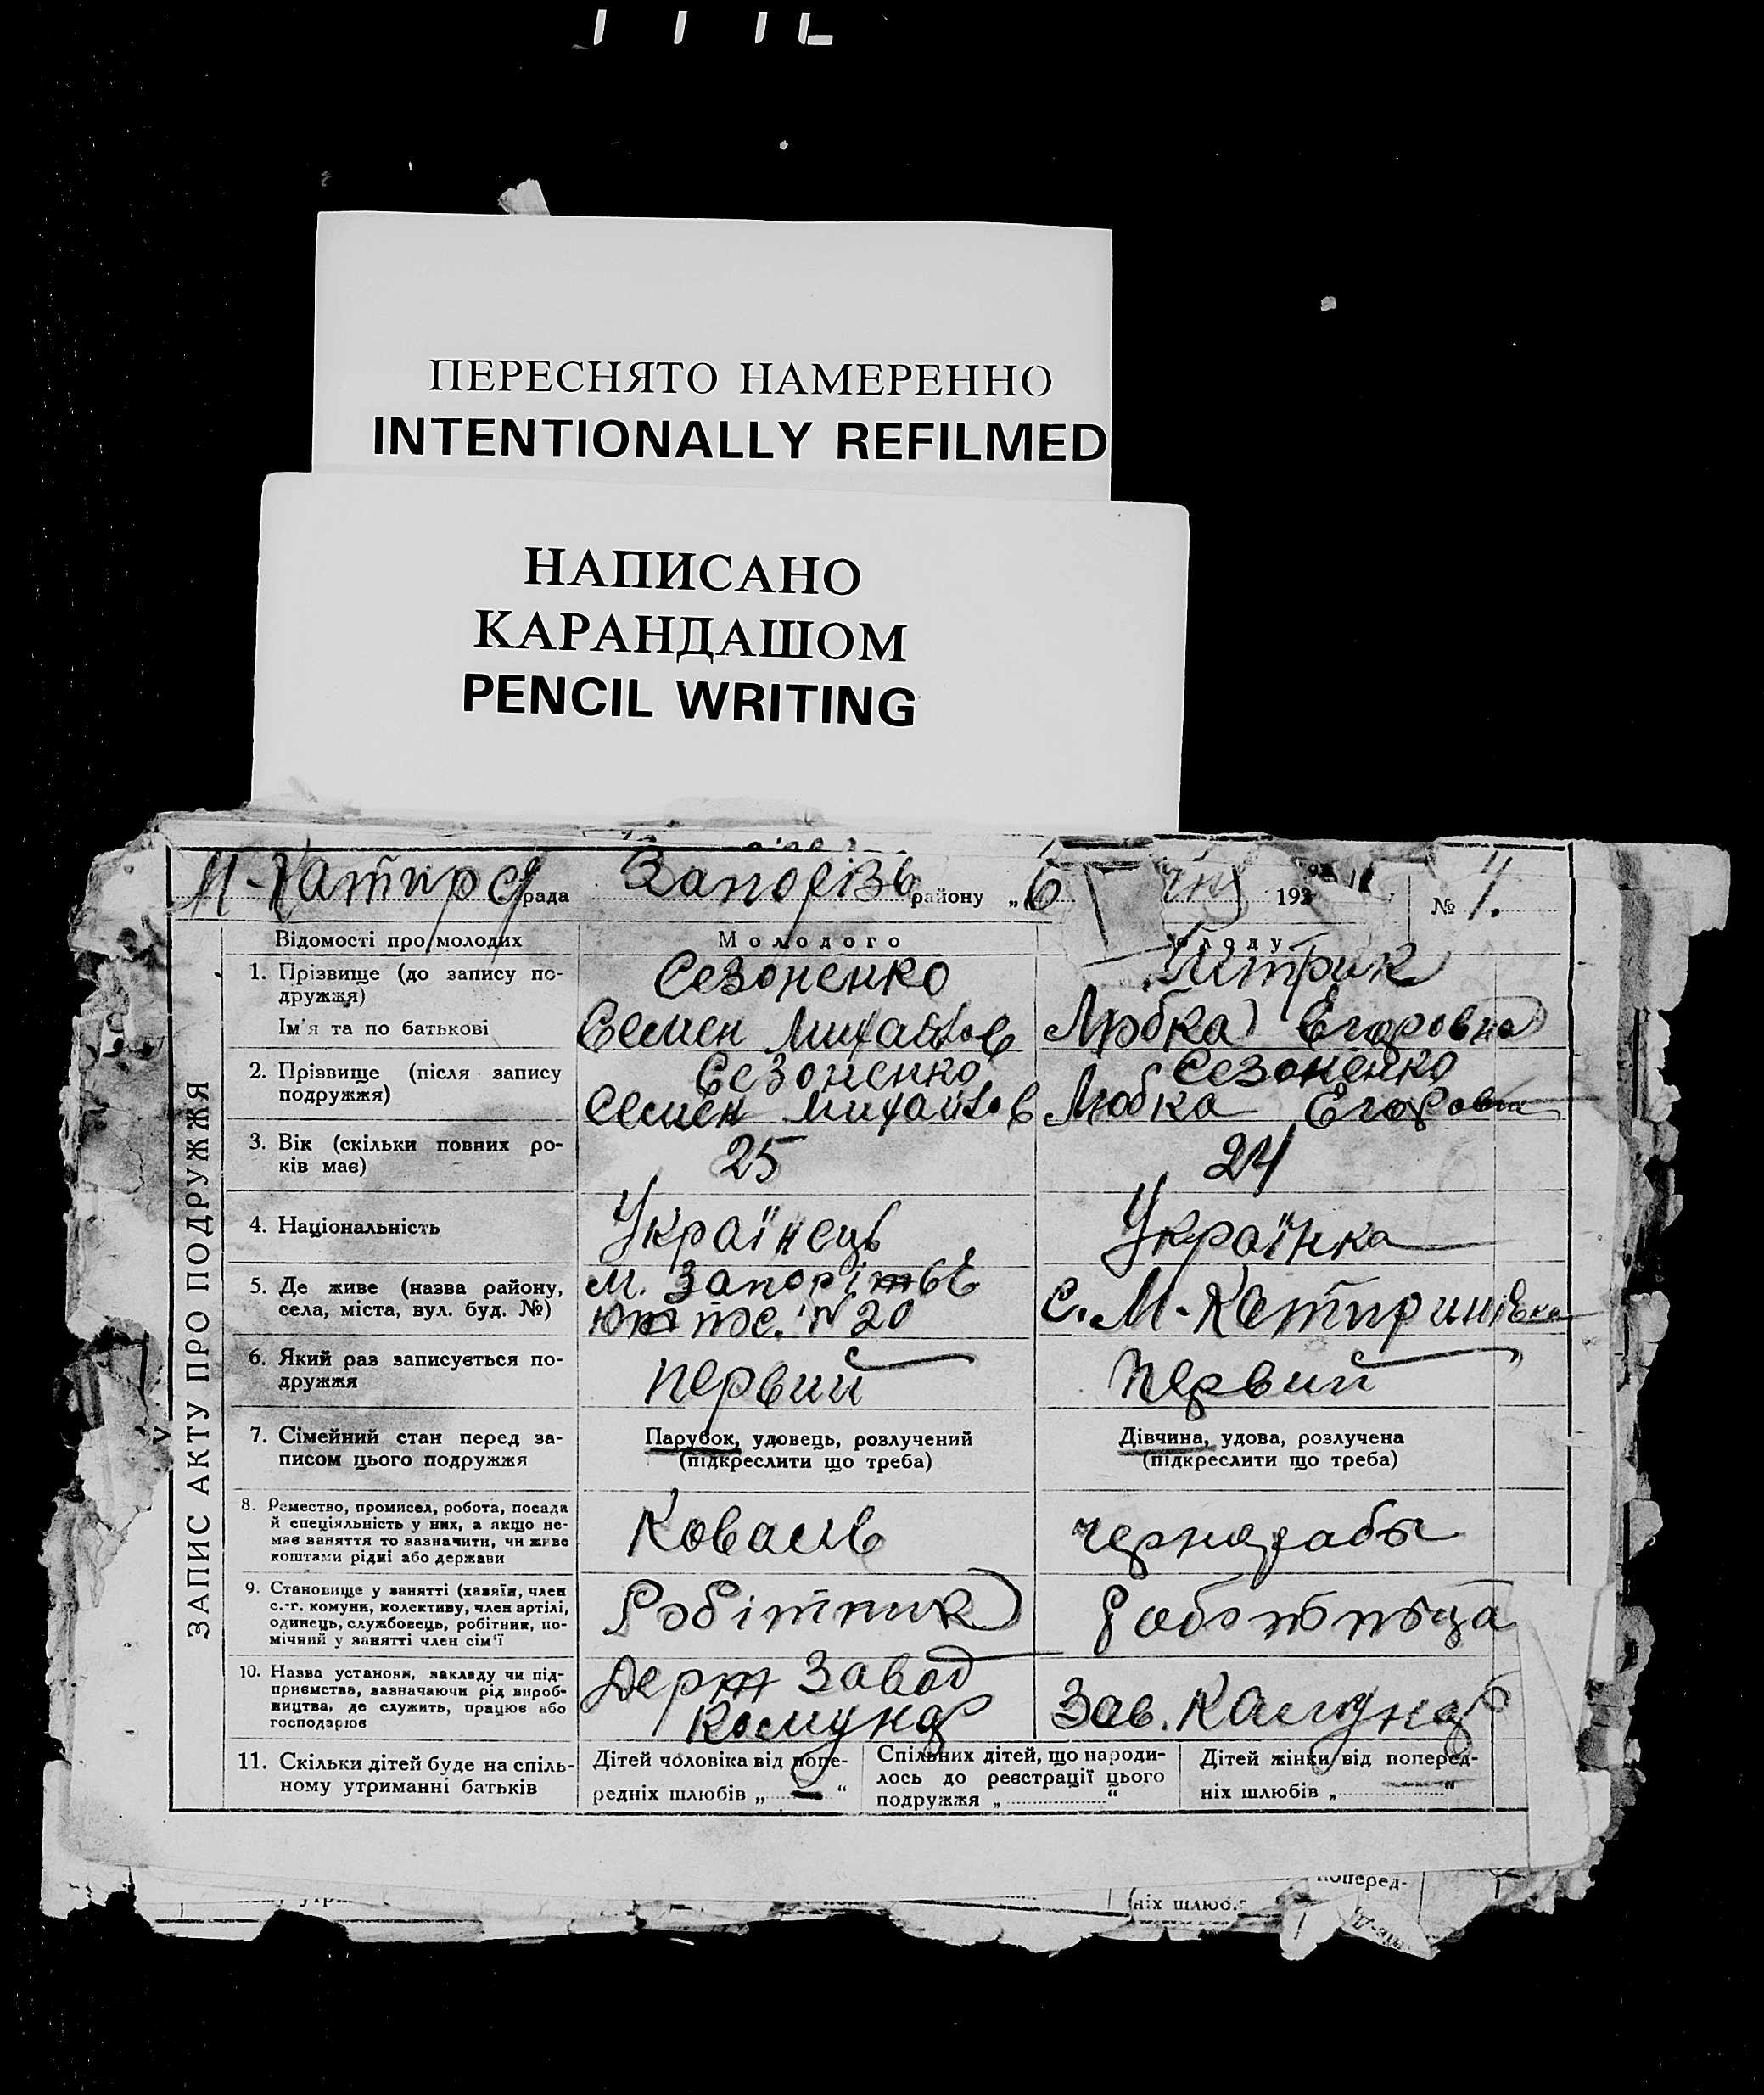 ПЕРЕСНЯТО НАМЕРЕННО
INTENTIONALLY REFILMED
НАПИСАНО
КАРАНДАШОМ
PENCIL WRITING
рада Запорізь району „6 192 № 4.
ЗАПИС АКТУ ПРО ПОДРУЖЖЯ
Відомості про молодих Молодого
1. Прізвище (до запису по-
дружжя)
Сезоненко
Ім'я та по батькові
Семен Михайлов Любка Егоровна
2. Прізвище (після запису
подружжя)
Сезоненко Сезоненко
Семен Михайлов Любка Егоровн
3. Вік (скільки повних ро-
ків має)
25 24
4. Національність
Українець Українка
5. Де живе (назва району,
села, міста, вул. буд. №)
м. № 20
с. М-Катиринівка
6. Який раз записується по-
дружжя
первий первий
7. Сімейний стан перед за-
писом цього подружжя
Парубок, удовець, розлучений
(підкреслити що треба)
Дівчина, удова, розлучена
(підкреслити що треба)
8. Ремество, промисел, робота, посада
й спеціяльність у них, а якщо не-
має заняття то зазначити, чи живе
коштами рідні або держави
Коваль чернорабы
9. Становище у занятті (хазяїн, член
с.-г. комуни, колективу, член артілі,
одинець, службовець, робітник, по-
мічний у занятті член сім'ї
Робітник
10. Назва установи, закладу чи під-
приємства, зазначаючи рід вироб-
ництва, де служить, працює або
господарює
Держ Завод
Комунар Зав. Камунар
11. Скільки дітей буде на спіль-
ному утриманні батьків
Дітей чоловіка від попе-
редніх шлюбів „ — “
Спільних дітей, що народи-
лось до реєстрації цього
подружжя „ “
Дітей жінки від поперед-
ніх шлюбів „ “
поперед-
ніх шлюб